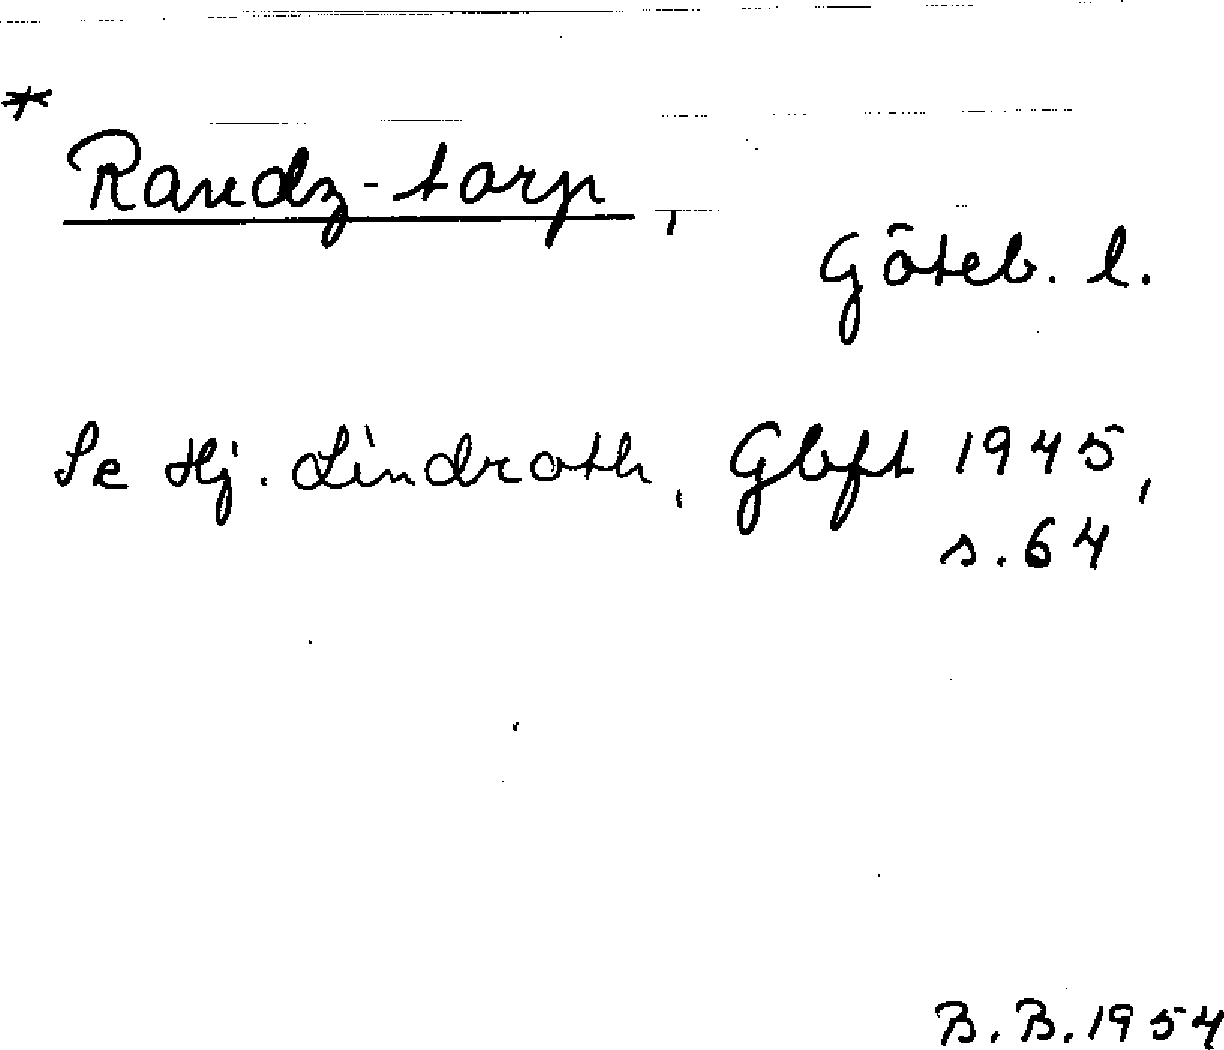 *
Randz-torp,
Göteb. l.
Se Hj. Lindroth, Gbft 1945,
s. 64
B. B. 1954